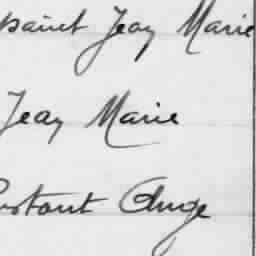 paint Jean Marie
Jean Marie
Constant Ange